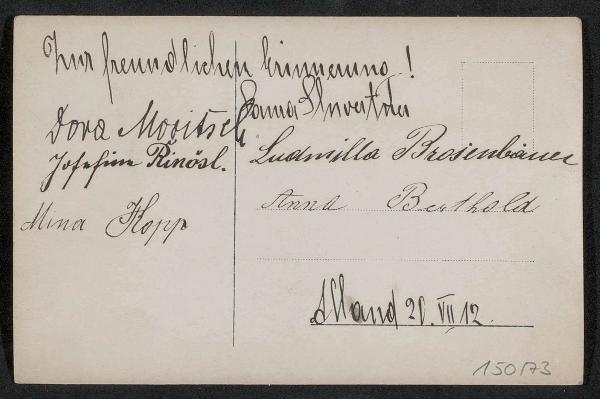 Zur freundlichen Erinnerung!
Dora Moritsch
Josefine Rinösl.
Mina Kopp
Ludmilla Brosenbauer
Anna Berthold
Alland 20. VII 12.
150173